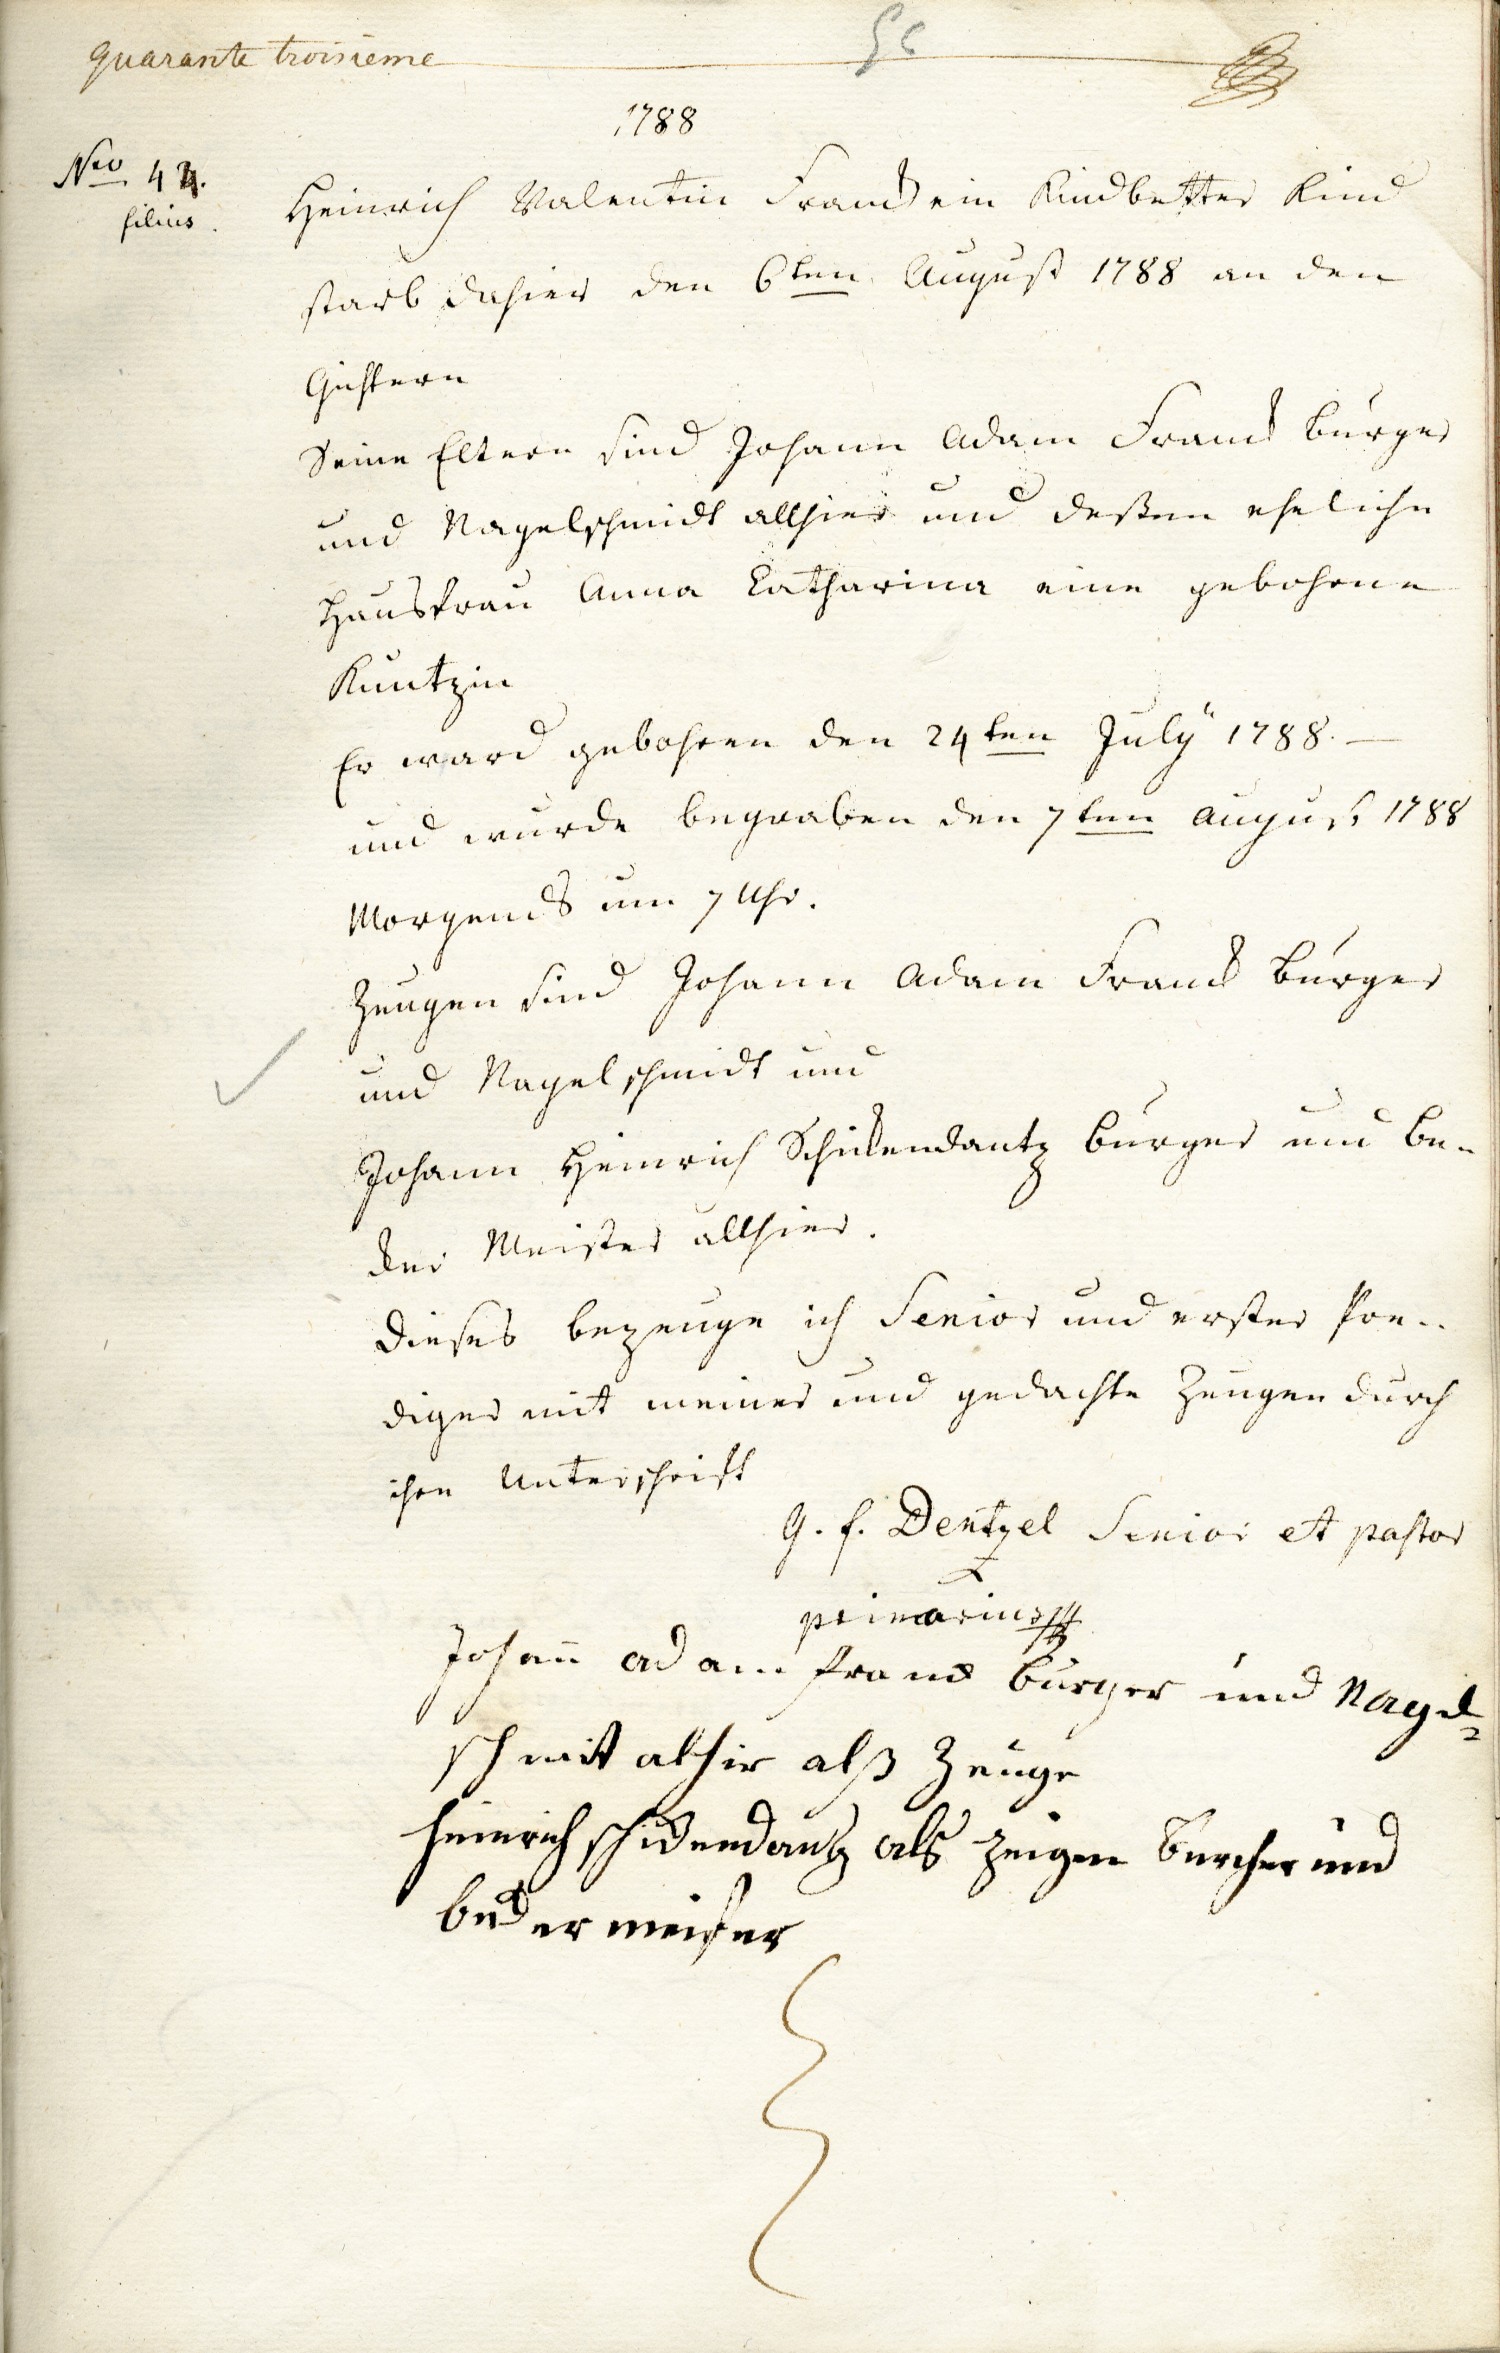 quarante troisieme
1788
Nro 44.
filius.
Heinrich Valentin Franck ein Kindbetter Kind
starb dahier den 6ten August 1788 an den
Gichtern
Seine Eltern sind Johann Adam Franck Burger
und Nagelschmidt allhier und dessen eheliche
Hausfrau Anna Catharina eine gebohrne
Kuntzin
Er ward gebohren den 24ten July 1788. —
und wurde begraben den 7ten August 1788
Morgends um 7 Uhr.
Zeugen sind Johann Adam Franck Burger
und Nagelschmidt und
Johann Heinrich Schickendantz burger und be-
cker Meister allhier.
Dieses bezeuge ich Senior und erster Pre-
diger mit meiner und gedachte Zeugen durch
ihre Unterschrift
G. f. Dentzel Senior et pastor
primarius
Johann adam franck burger und Nagel=
schmit alhir alß Zeuge
heinrich schickendantz als zeigen burcher und
becker meister